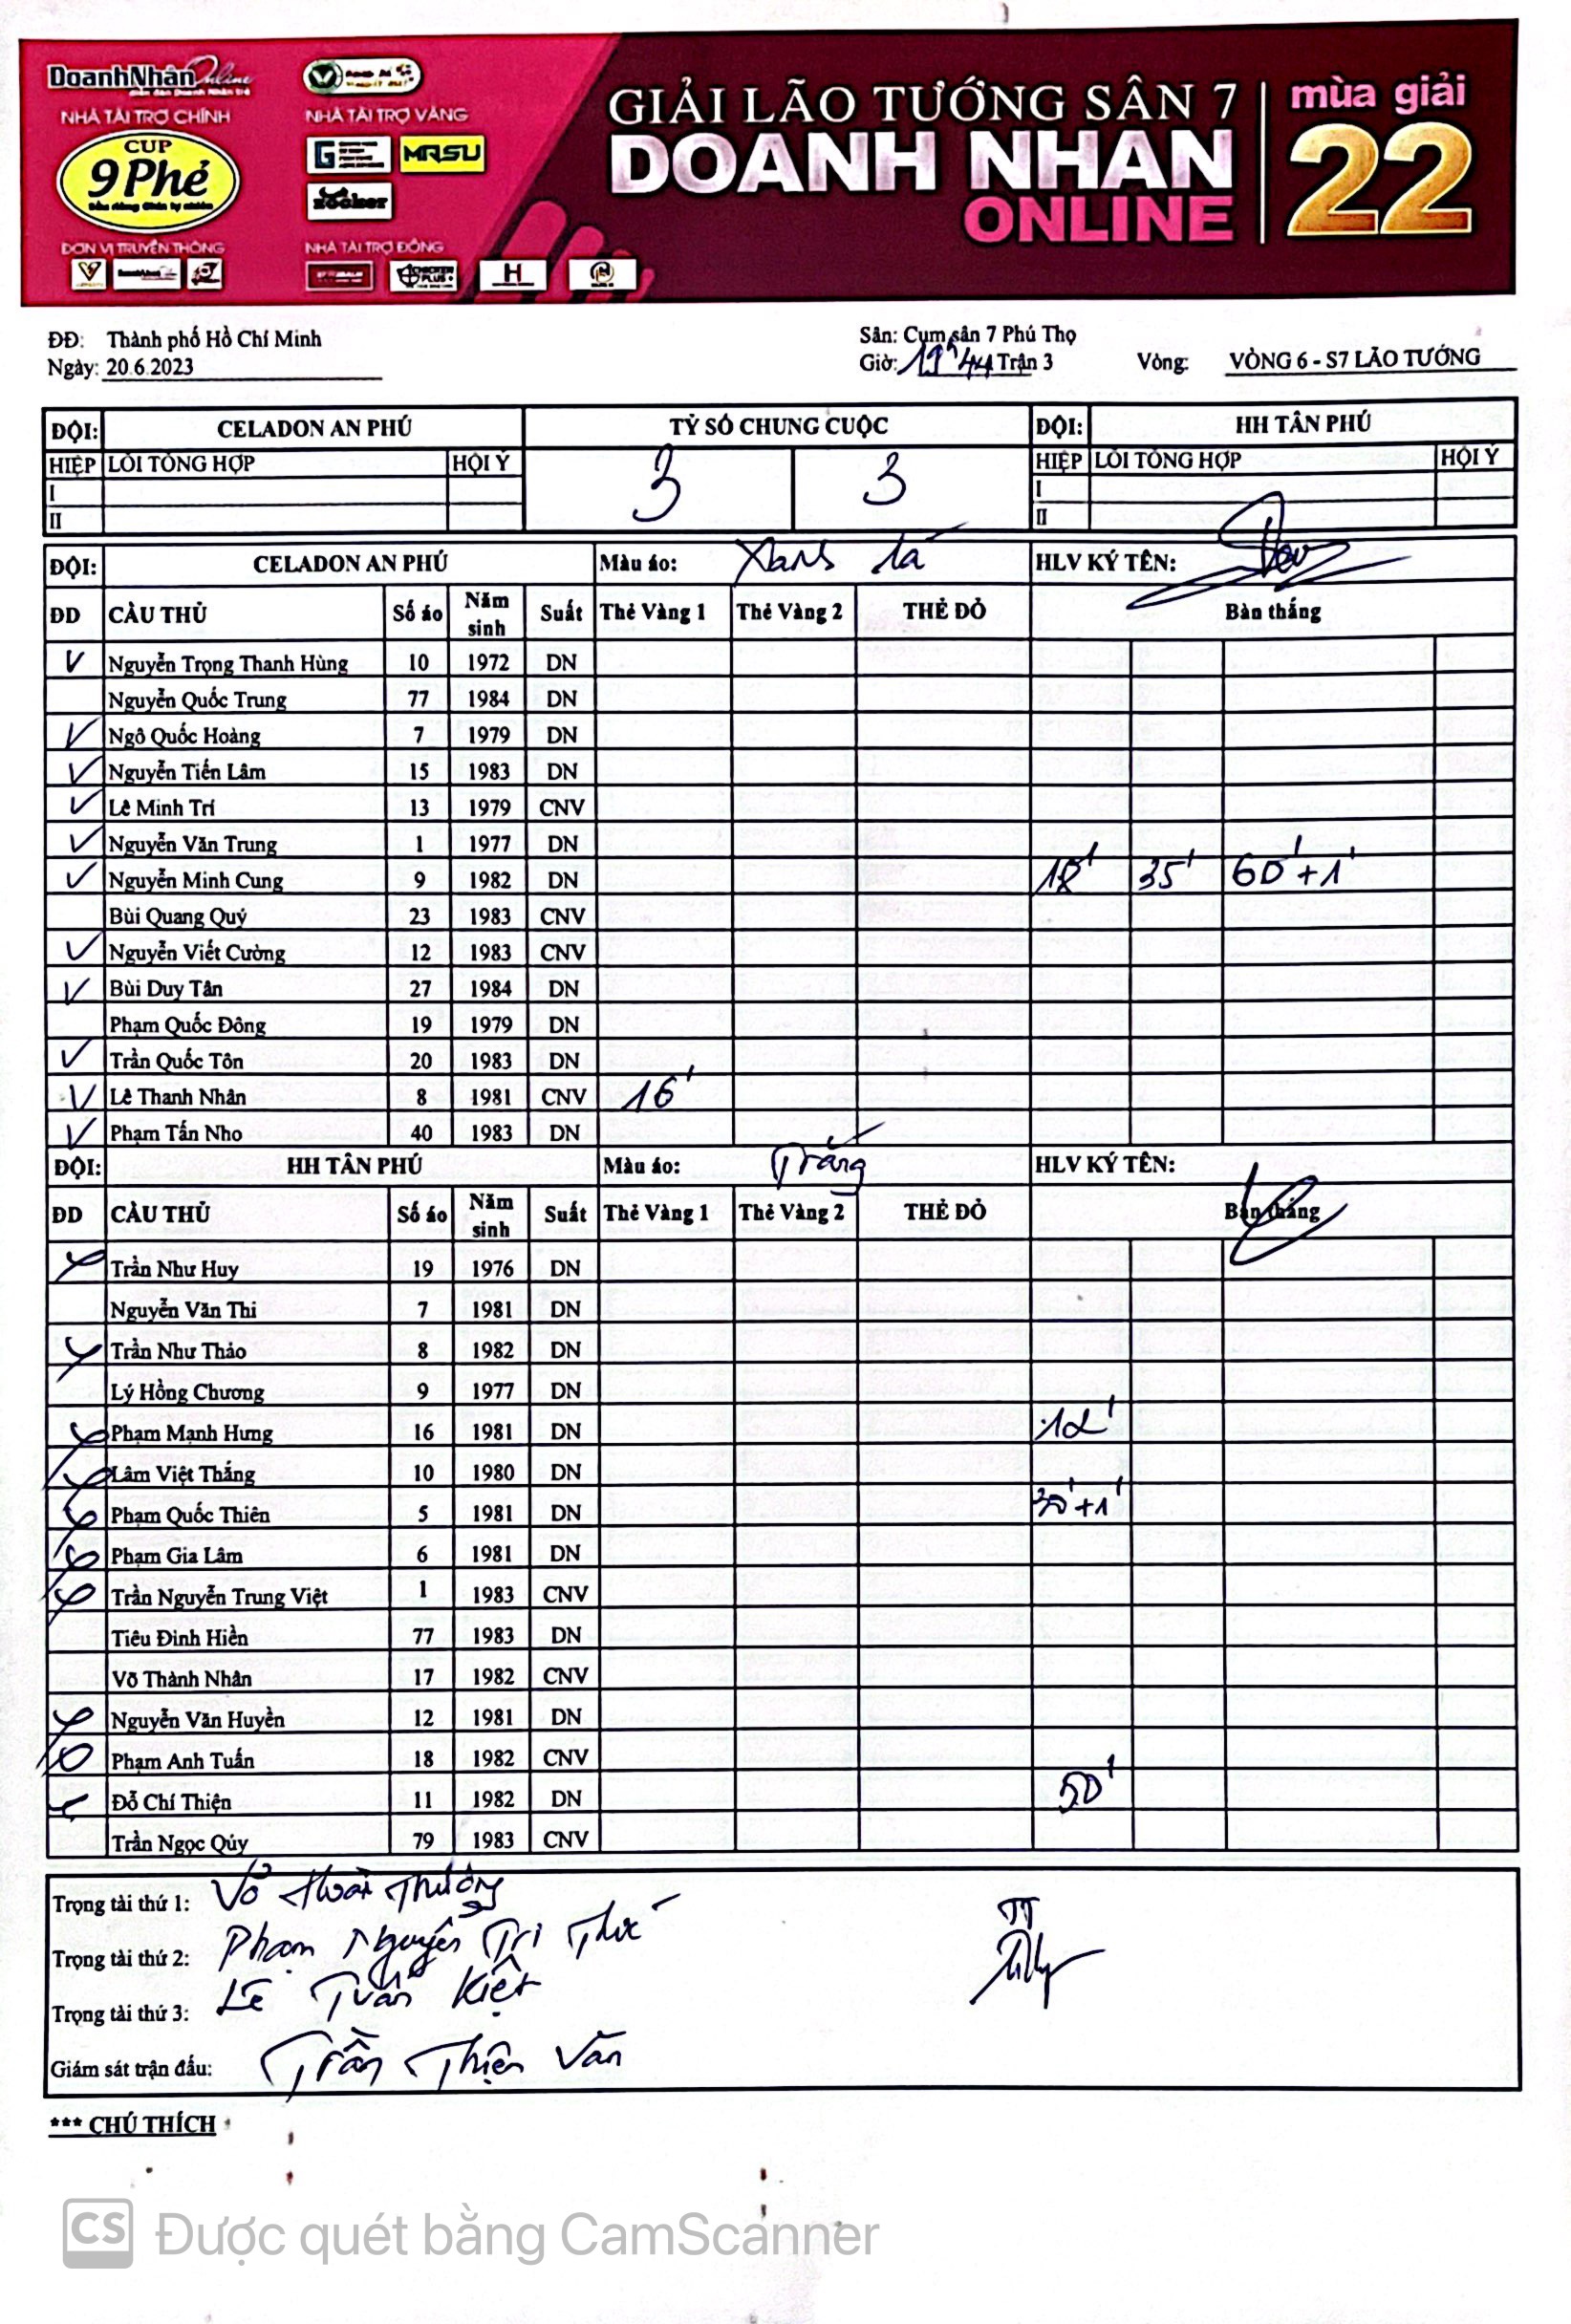 DoanhNhân Online
NHÀ TÀI TRỢ CHÍNH
NHÀ TÀI TRỢ VÀNG
CUP
9 Phẻ
MRSU
zocker
ĐƠN VỊ TRUYỀN THÔNG
NHÀ TÀI TRỢ ĐỒNG
CHICKEN PLUS
H
GIẢI LÃO TƯỚNG SÂN 7
DOANH NHAN
ONLINE
mùa giải
22
ĐĐ: Thành phố Hồ Chí Minh
Sân: Cụm sân 7 Phú Thọ
Ngày: 20.6.2023
Giờ: 19h44 Trận 3 Vòng: VÒNG 6 - S7 LÃO TƯỚNG
ĐỘI: CELADON AN PHÚ TỶ SỐ CHUNG CUỘC ĐỘI: HH TÂN PHÚ
HIỆP LỖI TỔNG HỢP HỘI Ý 3 3 HIỆP LỖI TỔNG HỢP HỘI Ý
I I
II II
ĐỘI: CELADON AN PHÚ Màu áo: Xanh lá HLV KÝ TÊN:
ĐD CẦU THỦ Số áo Năm sinh Suất Thẻ Vàng 1 Thẻ Vàng 2 THẺ ĐỎ Bàn thắng
Nguyễn Trọng Thanh Hùng 10 1972 DN
Nguyễn Quốc Trung 77 1984 DN
Ngô Quốc Hoàng 7 1979 DN
Nguyễn Tiến Lâm 15 1983 DN
Lê Minh Trí 13 1979 CNV
Nguyễn Văn Trung 1 1977 DN
Nguyễn Minh Cung 9 1982 DN 18' 35' 60'+1'
Bùi Quang Quý 23 1983 CNV
Nguyễn Viết Cường 12 1983 CNV
Bùi Duy Tân 27 1984 DN
Phạm Quốc Đông 19 1979 DN
Trần Quốc Tôn 20 1983 DN
Lê Thanh Nhân 8 1981 CNV 16'
Phạm Tấn Nho 40 1983 DN
ĐỘI: HH TÂN PHÚ Màu áo: Trắng HLV KÝ TÊN:
ĐD CẦU THỦ Số áo Năm sinh Suất Thẻ Vàng 1 Thẻ Vàng 2 THẺ ĐỎ Bàn thắng
Trần Như Huy 19 1976 DN
Nguyễn Văn Thi 7 1981 DN
Trần Như Thảo 8 1982 DN
Lý Hồng Chương 9 1977 DN
Phạm Mạnh Hưng 16 1981 DN 12'
Lâm Việt Thắng 10 1980 DN
Phạm Quốc Thiên 5 1981 DN 30'+1'
Phạm Gia Lâm 6 1981 DN
Trần Nguyễn Trung Việt 1 1983 CNV
Tiêu Đình Hiền 77 1983 DN
Võ Thành Nhân 17 1982 CNV
Nguyễn Văn Huyền 12 1981 DN
Phạm Anh Tuấn 18 1982 CNV
Đỗ Chí Thiện 11 1982 DN 50'
Trần Ngọc Qúy 79 1983 CNV
Trọng tài thứ 1: Võ Hoài Thương
Trọng tài thứ 2: Phạm Nguyễn Tri Thức
Trọng tài thứ 3: Lê Tuấn Kiệt
Giám sát trận đấu: Trần Thiện Văn
*** CHÚ THÍCH
CS Được quét bằng CamScanner